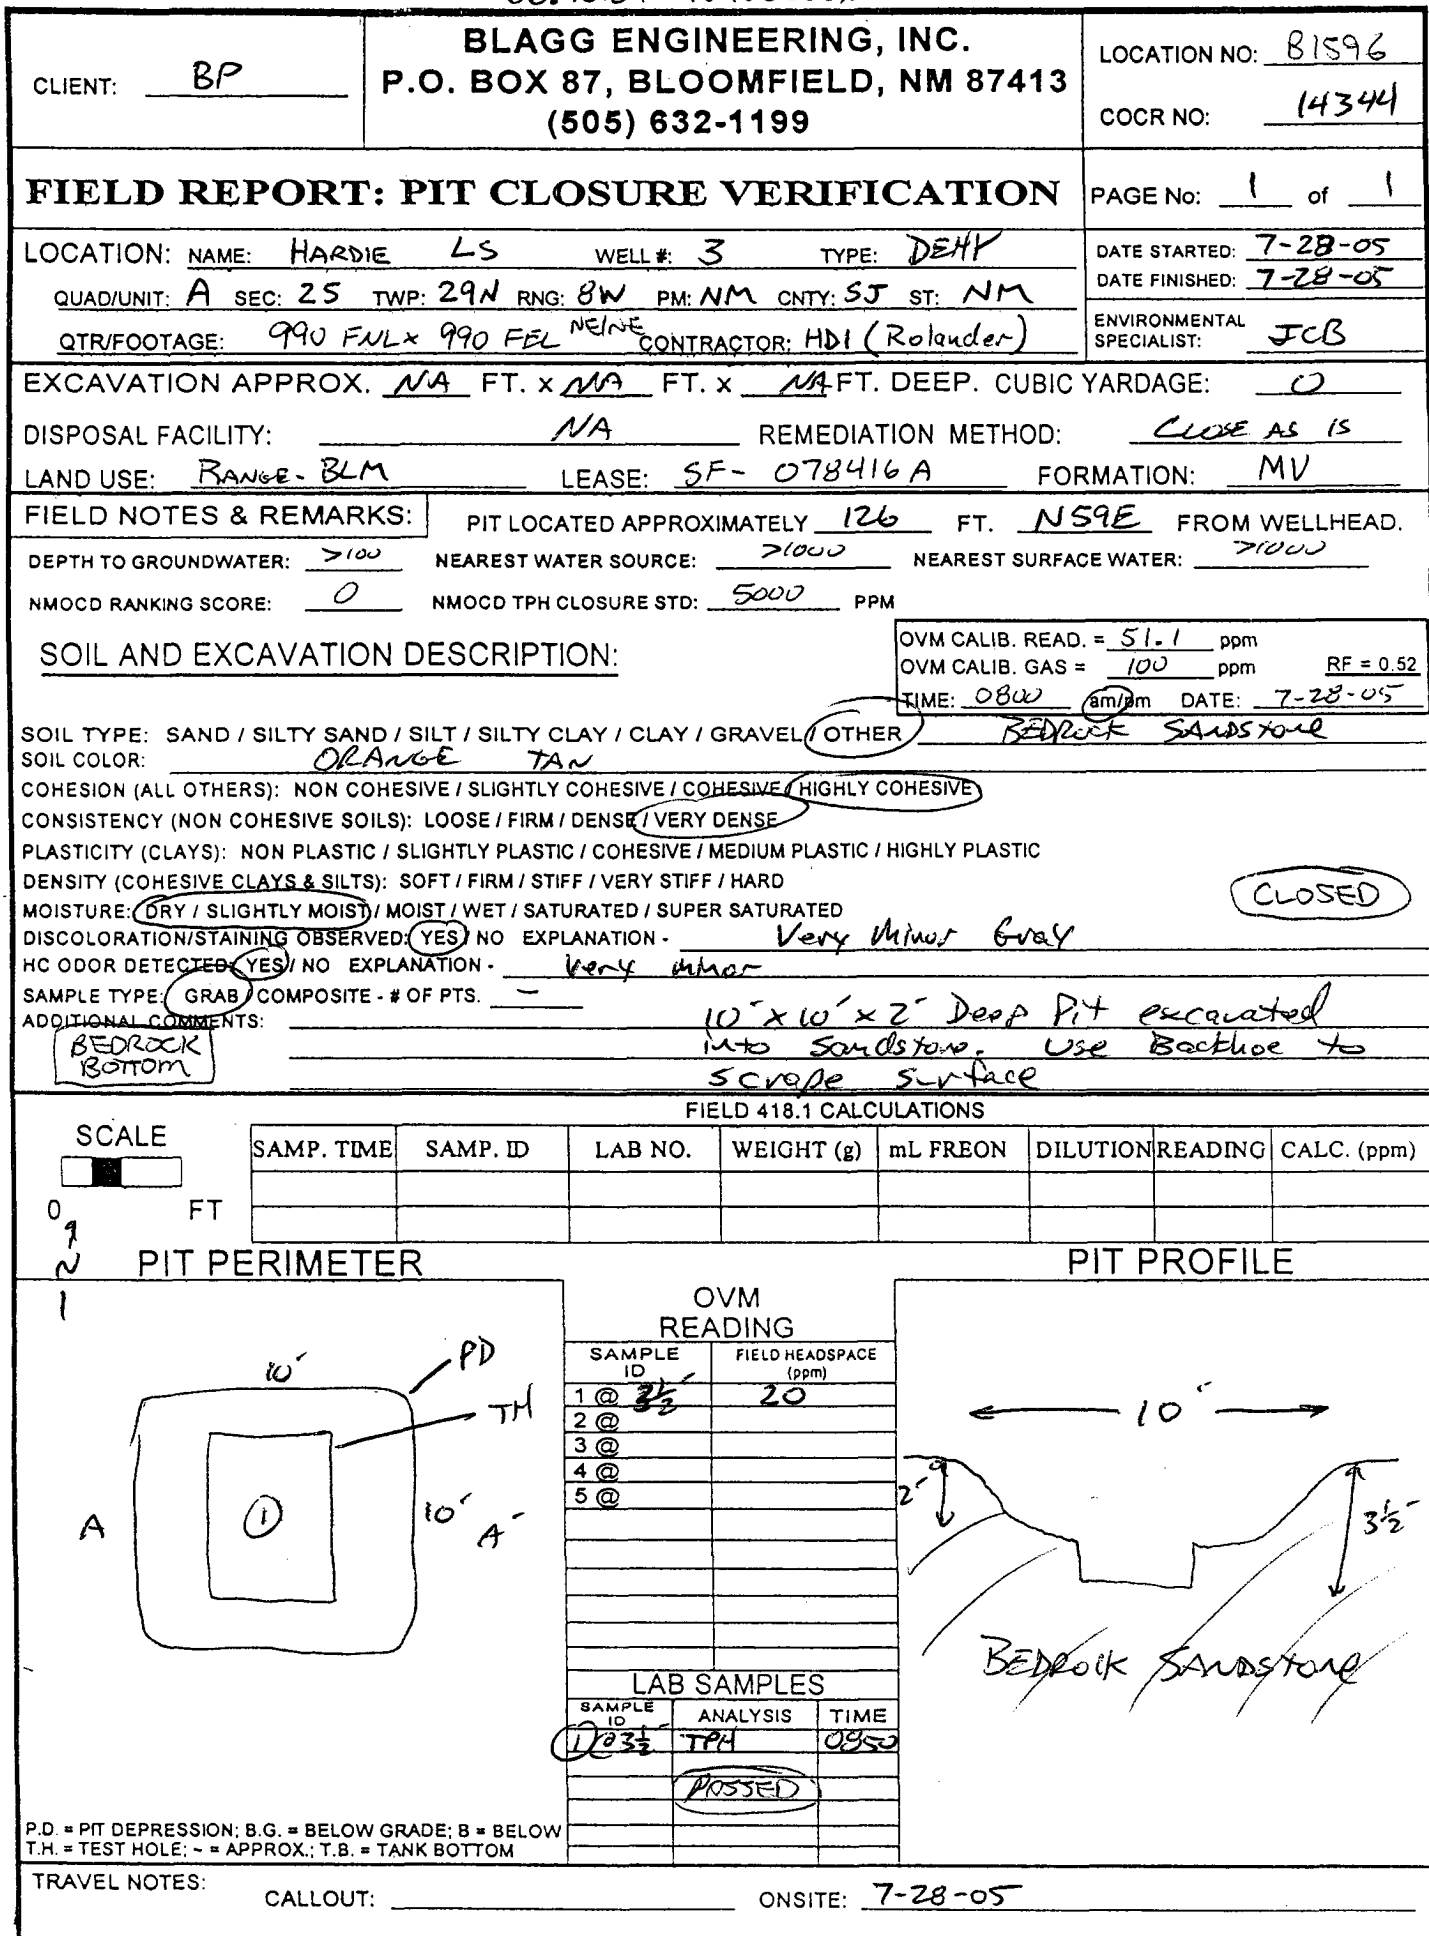 BLAGG ENGINEERING, INC.
P.O. BOX 87, BLOOMFIELD, NM 87413
(505) 632-1199
CLIENT: BP
LOCATION NO: B1596
COCR NO: 14344
FIELD REPORT: PIT CLOSURE VERIFICATION
PAGE No: 1 of 1
LOCATION: NAME: HARDIE LS WELL #: 3 TYPE: DEHY
QUAD/UNIT: A SEC: 25 TWP: 29N RNG: 8W PM: NM CNTY: SJ ST: NM
QTR/FOOTAGE: 990 FNL x 990 FEL NE/NE CONTRACTOR: HDI (Rolander)
DATE STARTED: 7-28-05
DATE FINISHED: 7-28-05
ENVIRONMENTAL SPECIALIST: JCB
EXCAVATION APPROX. NA FT. x NA FT. x NA FT. DEEP. CUBIC YARDAGE: 0
DISPOSAL FACILITY: NA REMEDIATION METHOD: CLOSE AS IS
LAND USE: RANGE - BLM LEASE: SF- 078416 A FORMATION: MV
FIELD NOTES & REMARKS: PIT LOCATED APPROXIMATELY 126 FT. N59E FROM WELLHEAD.
DEPTH TO GROUNDWATER: >100 NEAREST WATER SOURCE: >1000 NEAREST SURFACE WATER: >1000
NMOCD RANKING SCORE: 0 NMOCD TPH CLOSURE STD: 5000 PPM
SOIL AND EXCAVATION DESCRIPTION:
OVM CALIB. READ. = 51.1 ppm
OVM CALIB. GAS = 100 ppm RF = 0.52
TIME: 0800 am/pm DATE: 7-28-05
SOIL TYPE: SAND / SILTY SAND / SILT / SILTY CLAY / CLAY / GRAVEL / OTHER BEDROCK SANDSTONE
SOIL COLOR: ORANGE TAN
COHESION (ALL OTHERS): NON COHESIVE / SLIGHTLY COHESIVE / COHESIVE / HIGHLY COHESIVE
CONSISTENCY (NON COHESIVE SOILS): LOOSE / FIRM / DENSE / VERY DENSE
PLASTICITY (CLAYS): NON PLASTIC / SLIGHTLY PLASTIC / COHESIVE / MEDIUM PLASTIC / HIGHLY PLASTIC
DENSITY (COHESIVE CLAYS & SILTS): SOFT / FIRM / STIFF / VERY STIFF / HARD
MOISTURE: DRY / SLIGHTLY MOIST / MOIST / WET / SATURATED / SUPER SATURATED
CLOSED
DISCOLORATION/STAINING OBSERVED: YES / NO EXPLANATION - Very Minor Gray
HC ODOR DETECTED: YES / NO EXPLANATION - Very minor
SAMPLE TYPE: GRAB / COMPOSITE - # OF PTS. —
ADDITIONAL COMMENTS: 10' x 10' x 2' Deep Pit excavated
into Sandstone. Use Backhoe to
scrape surface
BEDROCK
BOTTOM
FIELD 418.1 CALCULATIONS
SCALE
0 FT
SAMP. TIME SAMP. ID LAB NO. WEIGHT (g) mL FREON DILUTION READING CALC. (ppm)
N
PIT PERIMETER
PIT PROFILE
OVM
READING
SAMPLE ID FIELD HEADSPACE (ppm)
1 @ 3½' 20
2 @
3 @
4 @
5 @
10'
PD
TH
A
1
10'
A'
10'
2'
3½'
BEDROCK SANDSTONE
LAB SAMPLES
SAMPLE ID ANALYSIS TIME
1 @ 3½' TPH 0950
PASSED
P.D. = PIT DEPRESSION; B.G. = BELOW GRADE; B = BELOW
T.H. = TEST HOLE; ~ = APPROX.; T.B. = TANK BOTTOM
TRAVEL NOTES:
CALLOUT: ONSITE: 7-28-05